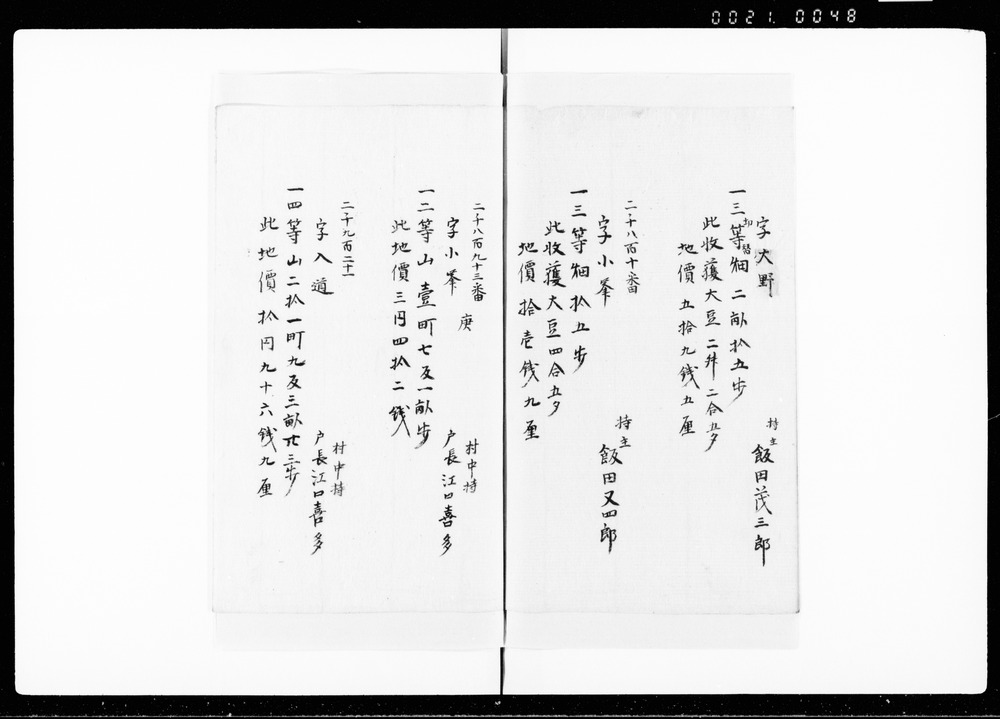 0021.0048
字大野
持主 飯田茂三郎
一三等畑 二畝拾五歩
切替
此收穫大豆二舛二合五夕
地價五拾九錢五厘
二千八百十番
字小峯
持主 飯田又四郎
一三等畑拾五歩
此收穫大豆四合五夕
地價拾壱錢九厘
二千八百九十三番
字小峯 庚
村中持
戸長江口喜多
一二等山壹町七反一畝歩
此地價三円四拾二錢
二千九百二十一
字入道
村中持
戸長江口喜多
一四等山二拾一町九反三畝廿三歩
此地價拾円九十六錢九厘